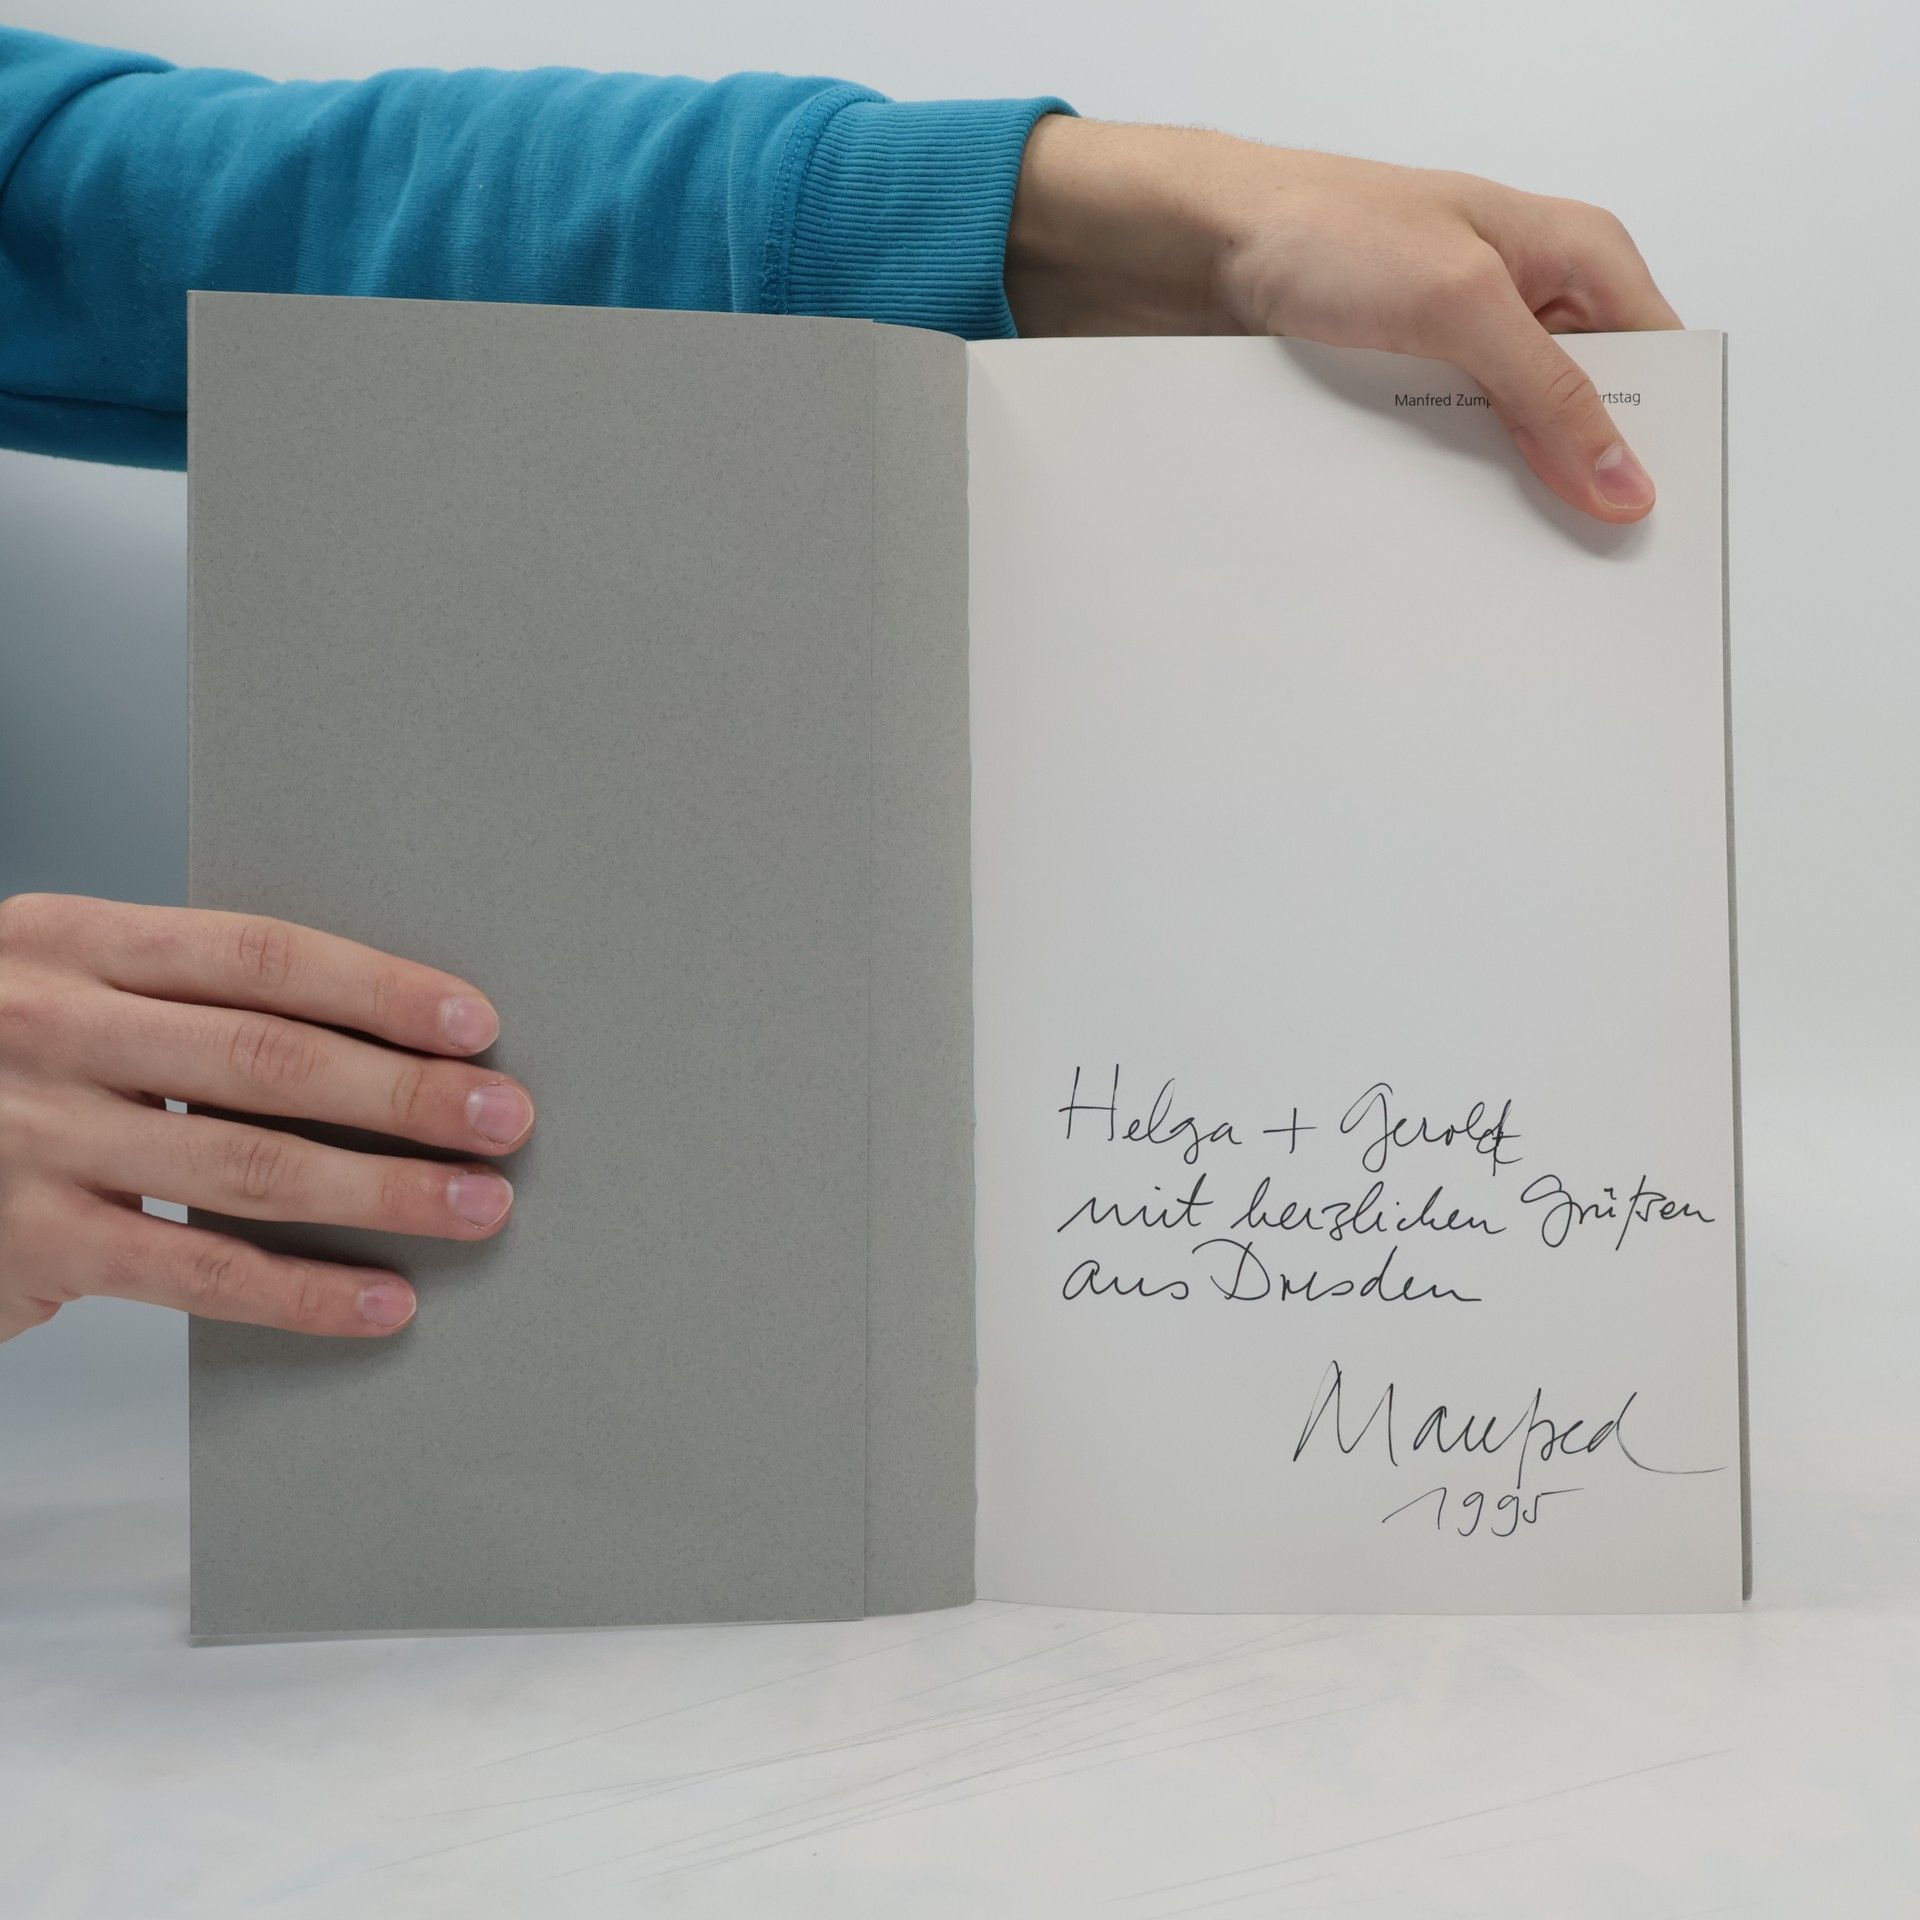 Manfred Zump rtstag
Helga + Gerold
mit herzlichen Grüßen
aus Dresden
Manfred
1995